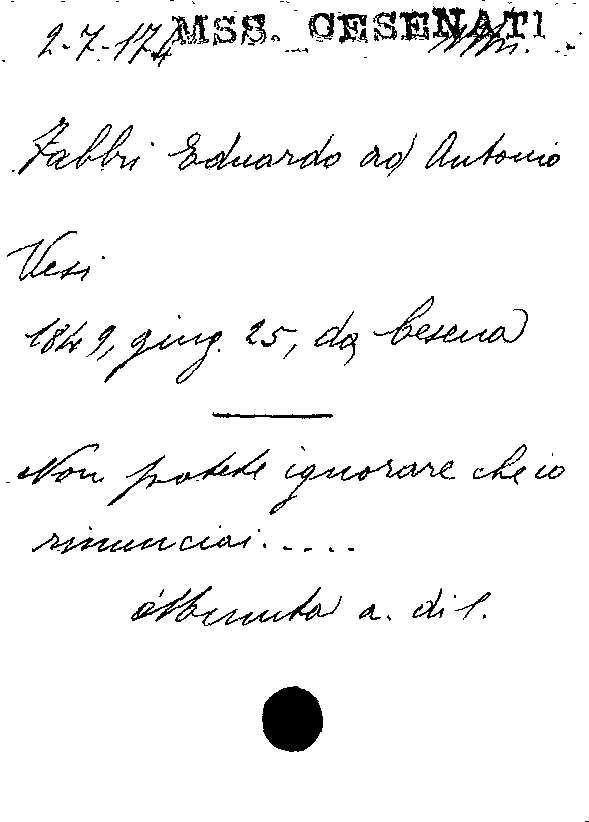 2-7-174 MSS. CESENATI
Fabbri Eduardo ad Antonio
Vesi
1849, giug. 25, da Cesena
Non potete ignorare che io
rinunciai.....
Minuta a. di l.